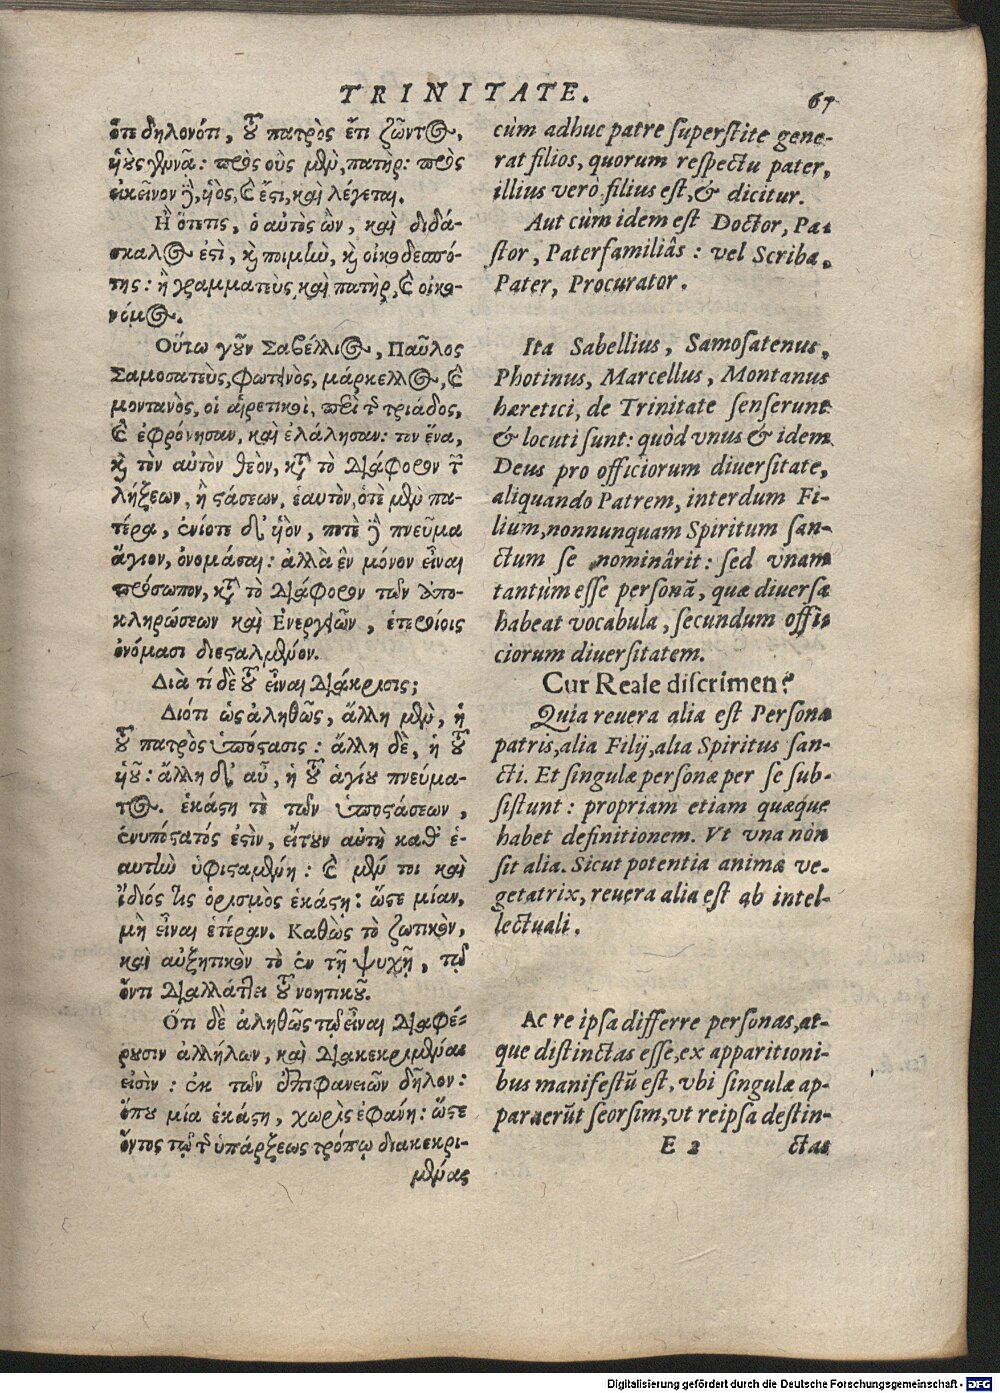 TRINITATE.
67
ὅτε δηλονότι, τοῦ πατρὸς ἔτι ζῶντος,
υἱοὺς γεννᾷ: πρὸς οὓς μὲν, πατήρ: πρὸς
ἐκεῖνον δὲ, υἱὸς, καὶ ἔστι, καὶ λέγεται.
Ἢ ὅτε τις, ὁ αὐτὸς ὢν, καὶ διδά-
σκαλος ἐστὶ, καὶ ποιμὴν, καὶ οἰκοδεσπό-
της: ἢ γραμματεὺς, καὶ πατὴρ, καὶ οἰκο-
νόμος.
Οὕτω γοῦν Σαβέλλιος, Παῦλος
Σαμοσατεὺς, φωτινὸς, μάρκελλος, καὶ
μοντανὸς, οἱ αἱρετικοὶ, περὶ τῆς τριάδος,
καὶ ἐφρόνησαν, καὶ ἐλάλησαν: τον ἕνα,
καὶ τὸν αὐτὸν θεὸν, κατὰ τὸ διάφορον τῶν
λήξεων, ἢ στάσεων, ἑαυτὸν, ὁτὲ μὲν πα-
τέρα, ἐνίοτε δ' υἱὸν, ποτὲ δὲ πνεῦμα
ἅγιον, ὀνομάσαι: ἀλλὰ ἓν μόνον εἶναι
πρόσωπον, κατὰ τὸ διάφορον τῶν ἀπο-
κληρώσεων καὶ Ἐνεργειῶν, ἑτεροίοις
ὀνόμασι διεσταλμένον.
Διὰ τί δὲ τοῦ εἶναι διάκρισις;
Διότι ὡς ἀληθῶς, ἄλλη μὲν, ἡ
τοῦ πατρὸς ὑπόστασις: ἄλλη δὲ, ἡ τοῦ
υἱοῦ: ἄλλη δ' αὖ, ἡ τοῦ ἁγίου πνεύμα-
τος. ἑκάστη τὲ τῶν ὑποστάσεων,
ἐνυπόστατός ἐστιν, εἴτουν αὐτὴ καθ' ἑ-
αυτὴν ὑφισταμένη: καὶ μέν τοι καὶ
ἴδιός τις ὁρισμὸς ἑκάστῃ: ὥστε μίαν,
μὴ εἶναι ἑτέραν. Καθὼς τὸ ζωτικὸν,
καὶ αὐξητικὸν τὸ ἐν τῇ ψυχῇ, τῷ
ὄντι διαλλάττει τοῦ νοητικοῦ.
Ὅτι δὲ ἀληθῶς τῷ εἶναι διαφέ-
ρουσιν ἀλλήλων, καὶ διακεκριμέναι
εἰσὶν: ἐκ τῶν ἐπιφανειῶν δῆλον:
ὅπου μία ἑκάστη, χωρὶς ἐφάνη: ὥστε
ὄντος τῷ τῆς ὑπάρξεως τρόπῳ διακεκρι-
μένας
cùm adhuc patre superstite gene-
rat filios, quorum respectu pater,
illius verò filius est, & dicitur.
Aut cùm idem est Doctor, Pa-
stor, Paterfamiliâs: vel Scriba,
Pater, Procurator.
Ita Sabellius, Samosatenus,
Photinus, Marcellus, Montanus
hæretici, de Trinitate senserunt
& locuti sunt: quòd vnus & idem
Deus pro officiorum diuersitate,
aliquando Patrem, interdum Fi-
lium, nonnunquam Spiritum san-
ctum se nominârit: sed vnam
tantùm esse personã, quæ diuersa
habeat vocabula, secundum offi-
ciorum diuersitatem.
Cur Reale discrimen?
Quia reuera alia est Persona
patris, alia Filij, alia Spiritus san-
cti. Et singulæ personæ per se sub-
sistunt: propriam etiam quæque
habet definitionem. Vt vna non
sit alia. Sicut potentia animæ ve-
getatrix, reuera alia est ab intel-
lectuali.
Ac re ipsa differre personas, at-
que distinctas esse, ex apparitioni-
bus manifestũ est, vbi singulæ ap-
paruerũt seorsim, vt reipsa destin-
E 2
ctas
Digitalisierung gefördert durch die Deutsche Forschungsgemeinschaft - DFG